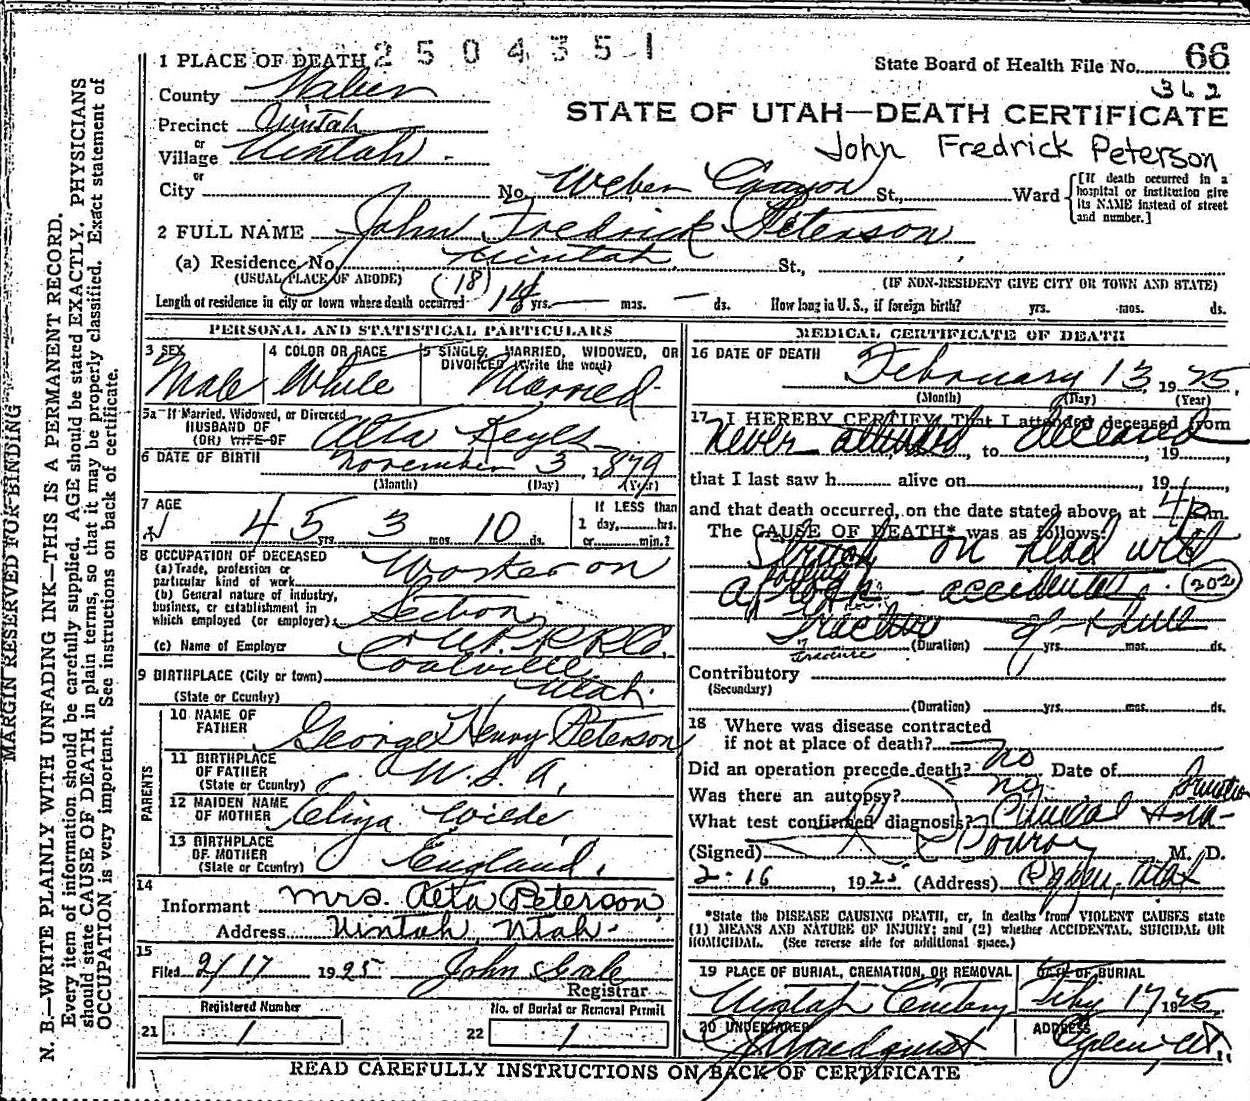 2504351
1 PLACE OF DEATH
State Board of Health File No. 66
362
County Weber
STATE OF UTAH—DEATH CERTIFICATE
Precinct Uintah
or
Village Uintah
John Fredrick Peterson
or
City No. Weber Canyon St., Ward
[If death occurred in a hospital or institution give its NAME instead of street and number.]
2 FULL NAME John Fredrick Peterson
(a) Residence, No. Uintah St.,
(USUAL PLACE OF ABODE) (IF NON-RESIDENT GIVE CITY OR TOWN AND STATE)
(18)
Length of residence in city or town where death occurred 18 yrs. — mos. — ds. How long in U. S., if foreign birth? yrs. mos. ds.
PERSONAL AND STATISTICAL PARTICULARS
3 SEX Male
4 COLOR OR RACE White
5 SINGLE, MARRIED, WIDOWED, OR DIVORCED (Write the word) Married
5a If Married, Widowed, or Divorced
HUSBAND OF
(OR) WIFE OF Alta Keyes
6 DATE OF BIRTH November 3, 1879
(Month) (Day) (Year)
7 AGE 45 yrs. 3 mos. 10 ds.
If LESS than
1 day, hrs.
or min.?
8 OCCUPATION OF DECEASED
(a) Trade, profession or
particular kind of work Worker on
(b) General nature of industry,
business, or establishment in
which employed (or employer) Section
(c) Name of Employer U.P.R.R.Co.
9 BIRTHPLACE (City or town) Coalville
(State or Country) Utah.
PARENTS
10 NAME OF
FATHER George Henry Peterson
11 BIRTHPLACE
OF FATHER
(State or Country) U.S.A.
12 MAIDEN NAME
OF MOTHER Eliza Wilde
13 BIRTHPLACE
OF MOTHER
(State or Country) England.
14
Informant Mrs. Alta Peterson
Address Uintah, Utah.
15
Filed 2/17 1925 John Gale
Registrar
Registered Number
21 1
No. of Burial or Removal Permit
22 1
MEDICAL CERTIFICATE OF DEATH
16 DATE OF DEATH
February 13 1925.
(Month) (Day) (Year)
17 I HEREBY CERTIFY, That I attended deceased from
never attended, to deceased, 19
that I last saw h alive on , 19
and that death occurred, on the date stated above, at 4 p.m.
The CAUSE OF DEATH* was as follows:
Struck on head with
falling
a rock - accidental. (202)
Fracture of skull
Fracture
(Duration) yrs. mos. ds.
Contributory
(Secondary)
(Duration) yrs. mos. ds.
18 Where was disease contracted
if not at place of death?
Did an operation precede death? No Date of
Was there an autopsy? no
What test confirmed diagnosis? Clinical
(Signed) M. D.
2-16, 1925 (Address) Ogden, Utah
*State the DISEASE CAUSING DEATH, or, in deaths from VIOLENT CAUSES state
(1) MEANS AND NATURE OF INJURY; and (2) whether ACCIDENTAL, SUICIDAL OR
HOMICIDAL. (See reverse side for additional space.)
19 PLACE OF BURIAL, CREMATION, OR REMOVAL
Uintah Cemetery
DATE OF BURIAL
Feby 17 1925.
20 UNDERTAKER
ADDRESS
Ogden, Ut.
READ CAREFULLY INSTRUCTIONS ON BACK OF CERTIFICATE
MARGIN RESERVED FOR BINDING
N. B.—WRITE PLAINLY WITH UNFADING INK—THIS IS A PERMANENT RECORD.
Every item of information should be carefully supplied. AGE should be stated EXACTLY. PHYSICIANS
should state CAUSE OF DEATH in plain terms, so that it may be properly classified. Exact statement of
OCCUPATION is very important. See instructions on back of certificate.